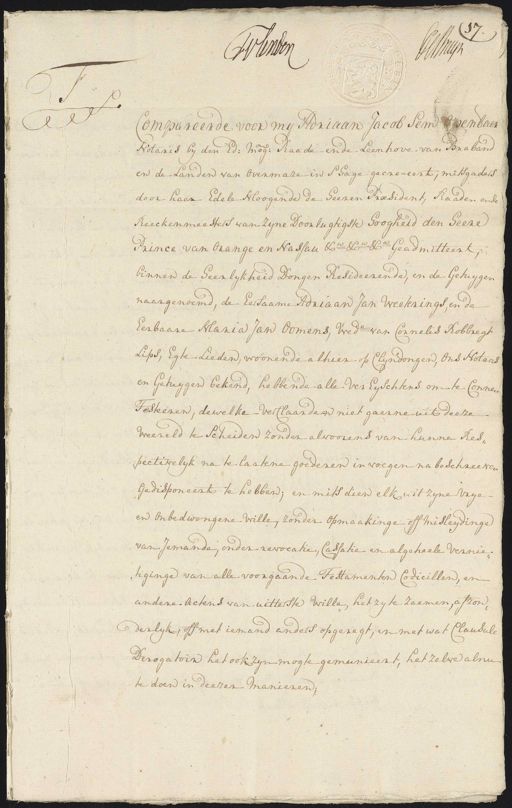 17.
Compareerde voor my Adriaan Jacob
Notaris by den Ed: Mog: Raade ende Leenhove van Braband
en de Landen van Overmaze in S'Hage gecreëert, mitsgaders
door haer Edele Hoogende de Heeren President, Raaden ende
Reeckenmeesters van Zyne Doorlugtigste Hoogheid den Heere
Prince van Orange en Nassau &ca &ca &ca Geadmitteert,
binnen de Heerlykheid Dongen Resideerende, en de Getuygen
naargenoemd, de Eersaame Adriaan Jan Weekrings, ende
Eerbaare Maria Jan Oomens, Wede van Cornelis Robbregt
Lips, Egte Lieden, woonende alhier op Clyndongen, Ons Notaris
en Getuygen bekend, hebbende alle Vereyschtens om te Connen
Testeeren, dewelke Verclaarden niet gaerne uit deeze
Weereld te Scheiden zonder alvoorens van hunne Res,
pectivelyk na te laatene goederen in voegen na beschreeven
Gedisponeert te hebben; en mits dien elk uit zyne Vrye
en Onbedwongene Wille, zonder Opmaakinge off Misleydinge
van Jemande, onder revocatie, Cassatie en algeheele Vernie,
teginge van alle voorgaande Testamenten Codicillen, en
andere Actens van uitterste Wille, het zy te zaemen, afzon,
derlyk, off met iemand anders opgeregt, en met wat Clausule
Derogatoir het ook zyn mogte gemunieert, het zelve alnu
te doen in deezer Manieren;